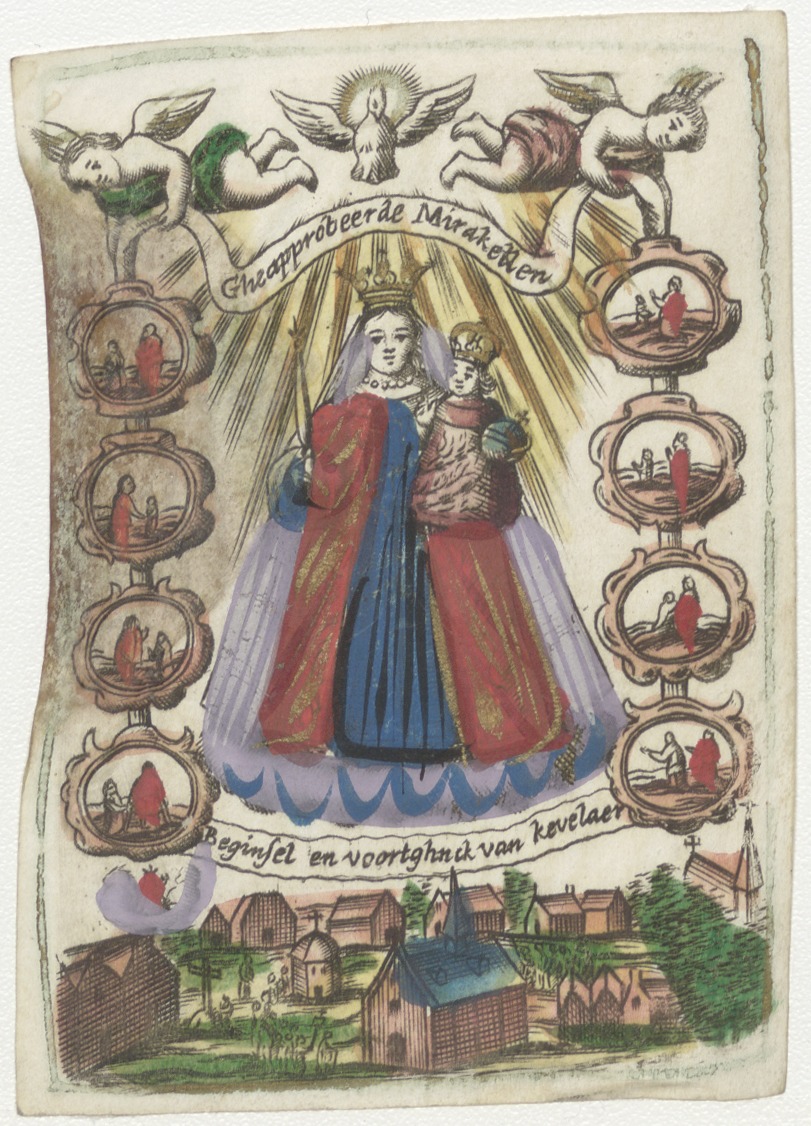 Gheapprobeerde Mirakelen
Beginsel en voortghnck van kevelaer